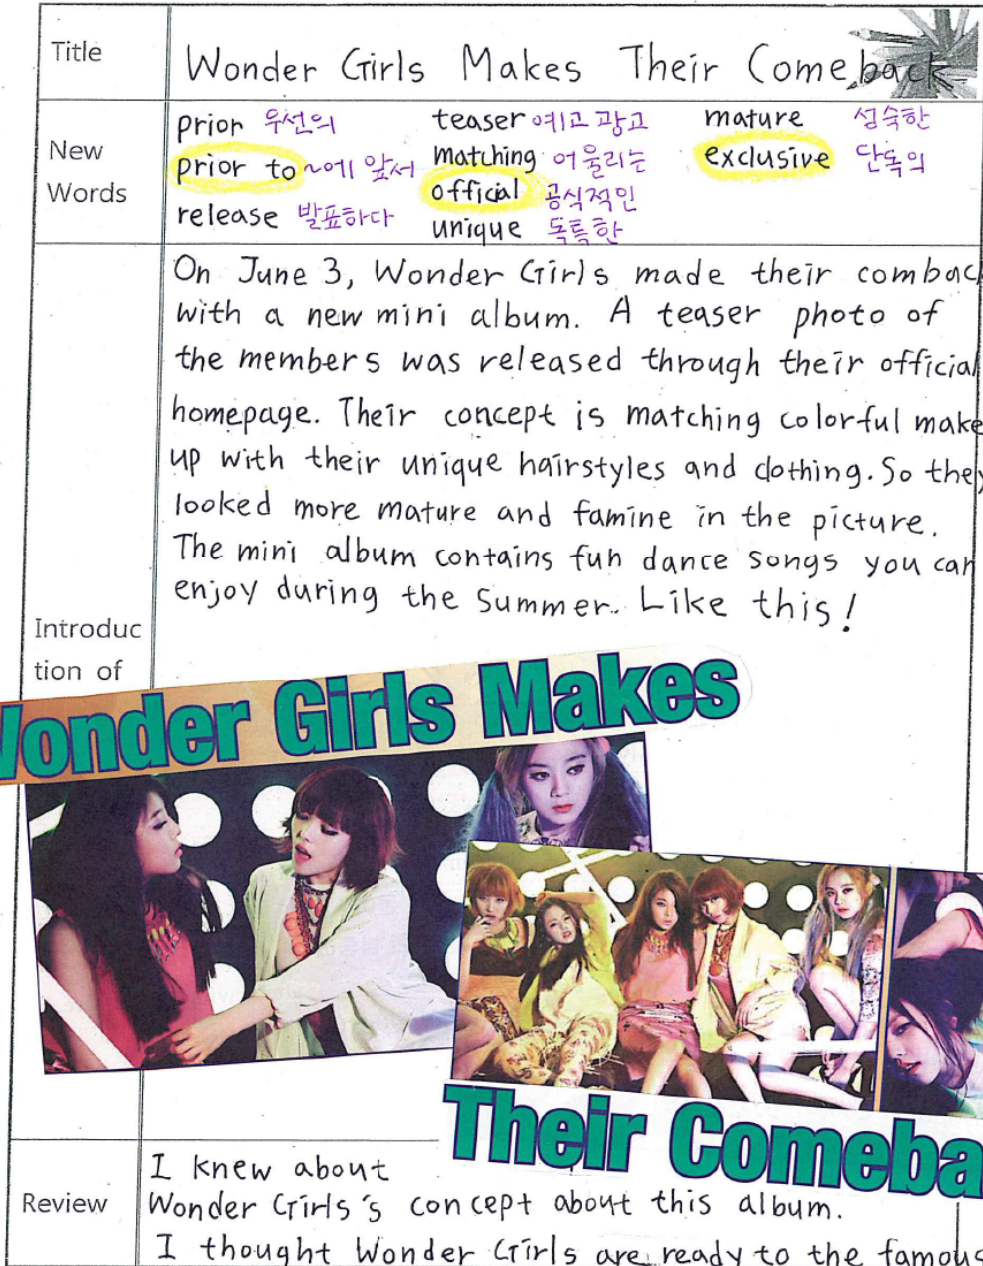 Title
Wonder Girls Makes Their Comeback
New
Words
prior 우선의
prior to ~에 앞서
release 발표하다
teaser 예고 광고
matching 어울리는
official 공식적인
unique 독특한
mature 성숙한
exclusive 단독의
Introduc
tion of
On June 3, Wonder Girls made their comback
with a new mini album. A teaser photo of
the members was released through their official
homepage. Their concept is matching colorful make
up with their unique hairstyles and clothing. So they
looked more mature and famine in the picture.
The mini album contains fun dance songs you can
enjoy during the Summer. Like this!
Wonder Girls Makes
Their Comeba
Review
I knew about
Wonder Girls's concept about this album.
I thought Wonder Girls are ready to the famous